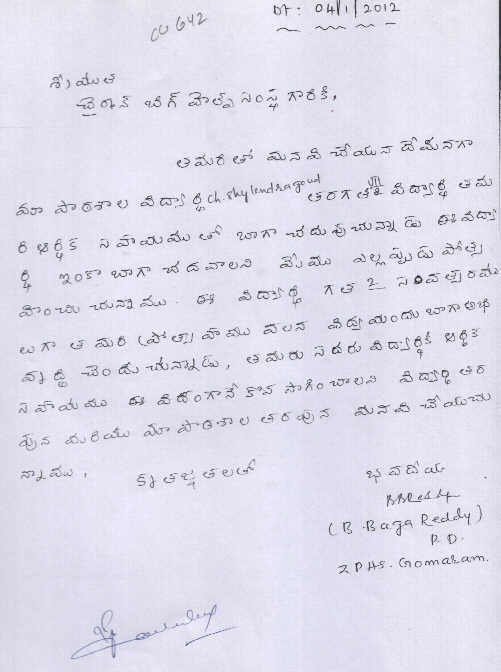 CU 642
Dt: 04/1/2012
శ్రీయుత
చైల్డ్ బిగ్ హెల్ప్ సంస్థ గారికి,
తమరితో మనవి చేయునదేమనగా
మా పాఠశాల విద్యార్థి ch. shylendragoud VII తరగతి విద్యార్థి తమ
రి ఆర్థిక సహాయము తో బాగా చదువుచున్నాడు ఈ విద్యా
ర్థి ఇంకా బాగా చదవాలని మేము ఎల్లప్పుడు ప్రోత్స
హించుచున్నాము. ఈ విద్యార్థి గత 2 సంవత్సరము
లుగా తమరి ప్రోత్సాహము వలన విద్యయందు బాగా అభి
వృద్ధి చెందుచున్నాడు, తమరు సదరు విద్యార్థికి ఆర్థిక
సహాయము ఈ విధంగానే కొనసాగించాలని విద్యార్థి తర
పున మరియు మా పాఠశాల తరపున మనవి చేయుచు
న్నాము,
కృతజ్ఞతలతో
భవదీయ
BBReddy
(B. Baga Reddy)
P.D.
ZPHS. Gomaram.